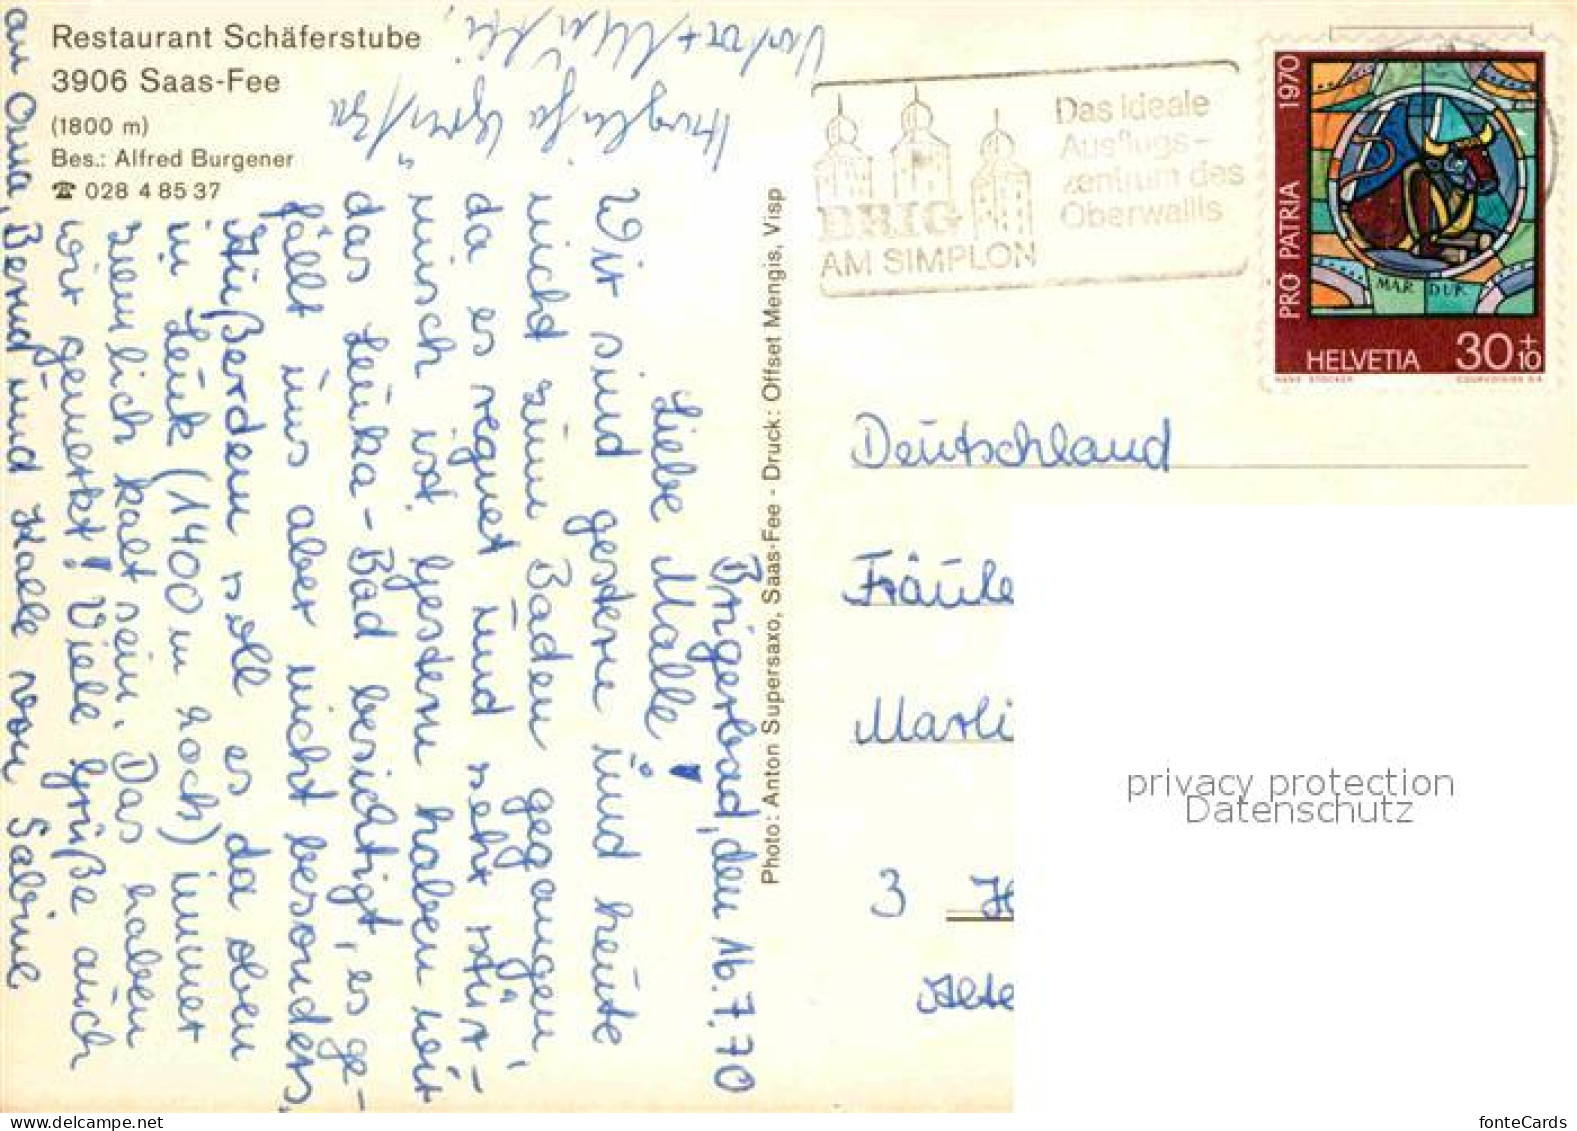 Restaurant Schäferstube
3906 Saas-Fee
(1800 m)
Bes.: Alfred Burgener
☎ 028 4 85 37
Brigerbad, den 16.7.70
Liebe Malle!
Wir sind gestern und heute
nicht zum Baden gegangen,
da es regnet und sehr stür-
misch ist. Gestern haben wir
das Leuka-Bad besichtigt, es ge-
fällt uns aber nicht besonders.
Außerdem soll es da oben
in Leuk (1400 m hoch) immer
ziemlich kalt sein. Das haben
wir gemerkt! Viele Grüße auch
an Oma, Bernd und Kalle von Sabine
Photo: Anton Supersaxo, Saas-Fee - Druck: Offset Mengis, Visp
BRIG
AM SIMPLON
Das ideale
Ausflugs-
zentrum des
Oberwallis
PRO PATRIA 1970
MAR DUK
HELVETIA 30+10
HANS STOCKER
COURVOISIER S.A.
Deutschland
Fräule
Marli
3 H
Alte
privacy protection
Datenschutz
fonteCards